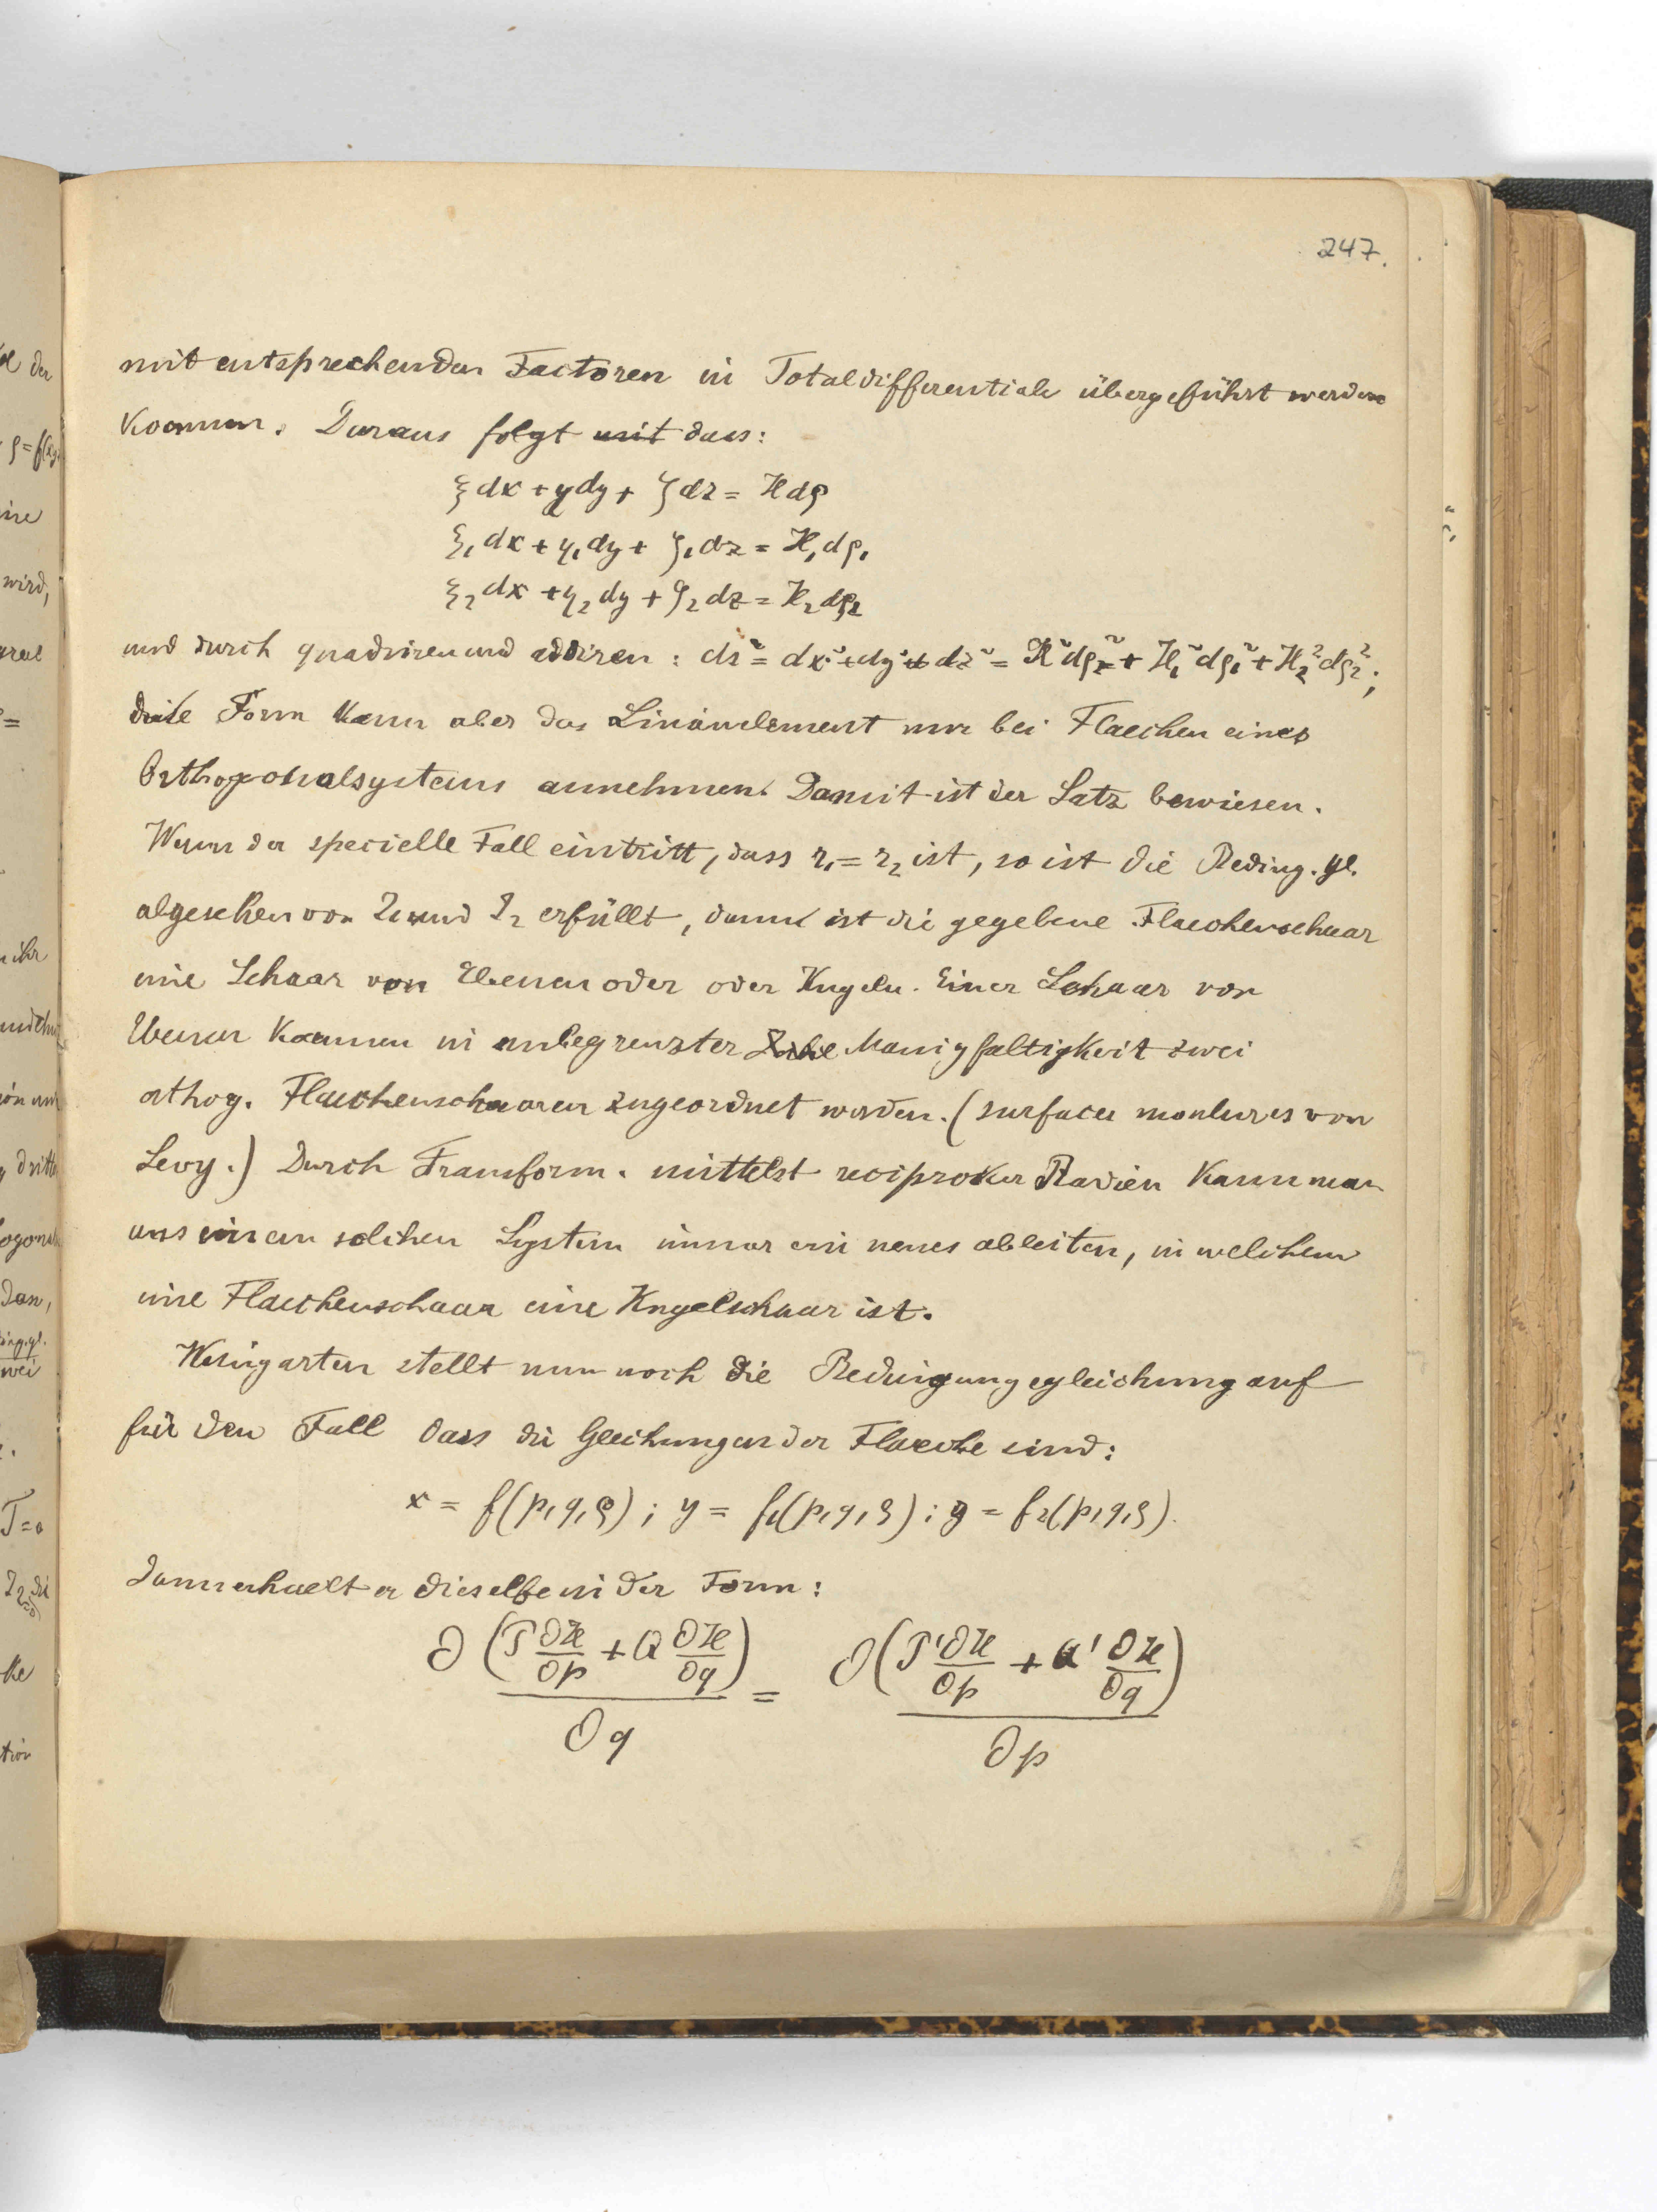 247.
mit entsprechenden Factoren in Totaldifferentiale übergeführt werden
koennen. Daraus folgt mit dass:
ξdx + ηdy + ζdz = Hdρ
ξ₁dx + η₁dy + ζ₁dz = H₁dρ₁
ξ₂dx + η₂dy + ζ₂dz = H₂dρ₂
und durch quadriren und addiren: ds² = dx² + dy² + dz² = H²dρ² + H₁²dρ₁² + H₂²dρ₂²;
diese Form kann aber das Linienelement nur bei Flaechen eines
Orthogonalsystems annehmen. Damit ist der Satz bewiesen.
Wenn der specielle Fall eintritt, dass r₁ = r₂ ist, so ist die Beding. gl.
abgesehen von und erfüllt, dann ist die gegebene Flaechenschaar
eine Schaar von Ebenen oder oder Kugeln. Einer Schaar von
Ebenen koennen in unbegrenzter Manigfaltigkeit zwei
orthog. Flaechenschaaren zugeordnet werden. (surfaces moulures von
Levy.) Durch Transform. mittelst reciproker Radien kann man
aus einem solchen System immer ein neues ableiten, in welchem
eine Flaechenschaar eine Kugelschaar ist.
Weingarten stellt nun noch die Bedingungsgleichung auf
für den Fall dass die Gleichungen der Flaeche sind:
x = f(p,q,ρ); y = f₁(p,q,ρ); z = f₂(p,q,ρ).
dann erhaelt er dieselbe in der Form:
∂(P ∂H/∂p + Q ∂H/∂q)/∂q = ∂(P' ∂H/∂p + Q' ∂H/∂q)/∂p